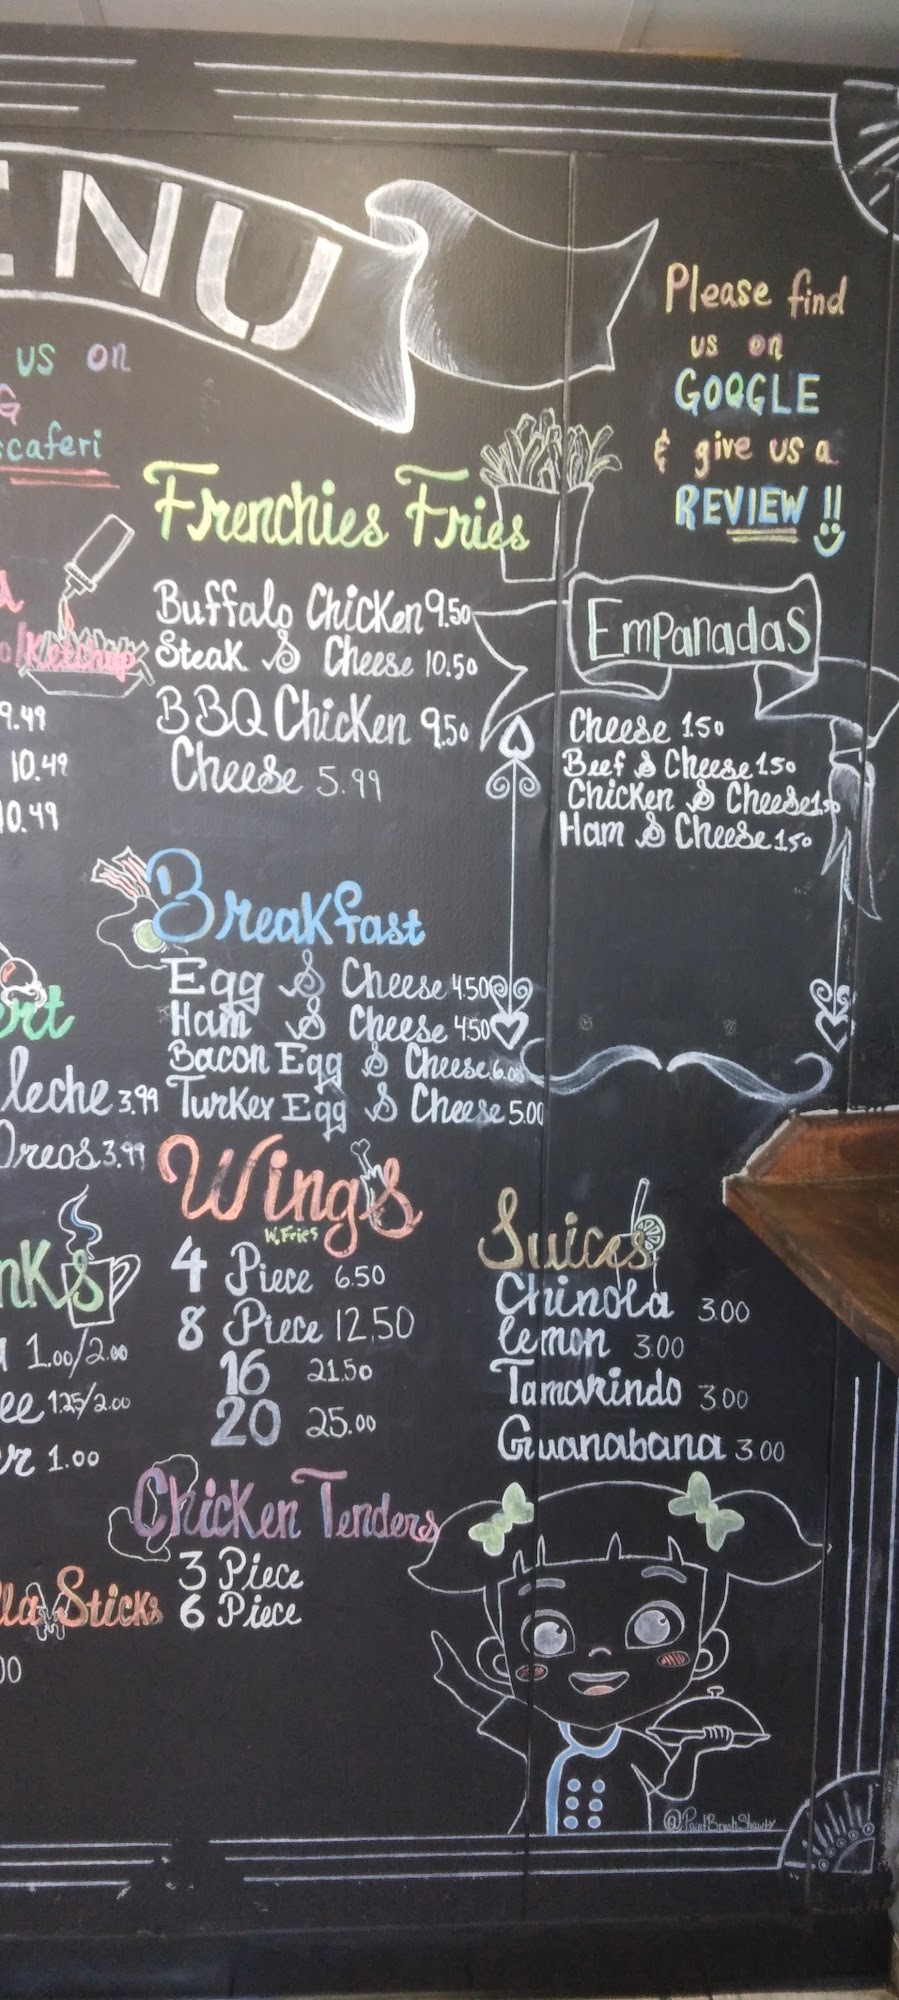 ENU
us on
G
scaferi
Please find
us on
GOOGLE
& give us a
REVIEW !!
Frenchies Fries
Buffalo Chicken 9.50
Steak & Cheese 10.50
BBQ Chicken 9.50
Cheese 5.99
Ketchup
9.49
10.49
10.49
Empanadas
Cheese 1.50
Beef & Cheese 1.50
Chicken & Cheese 1.50
Ham & Cheese 1.50
Breakfast
Egg & Cheese 4.50
Ham & Cheese 4.50
Bacon Egg & Cheese 6.00
Turkey Egg & Cheese 5.00
ert
leche 3.99
Oreos 3.99
Wings
W. Fries
4 Piece 6.50
8 Piece 12.50
16 21.50
20 25.00
nks
1.00/2.00
ee 1.25/2.00
er 1.00
Juices
Chinola 3.00
lemon 3.00
Tamarindo 3.00
Guanabana 3.00
Chicken Tenders
3 Piece
6 Piece
lla Sticks
00
@PaintBrushShawty